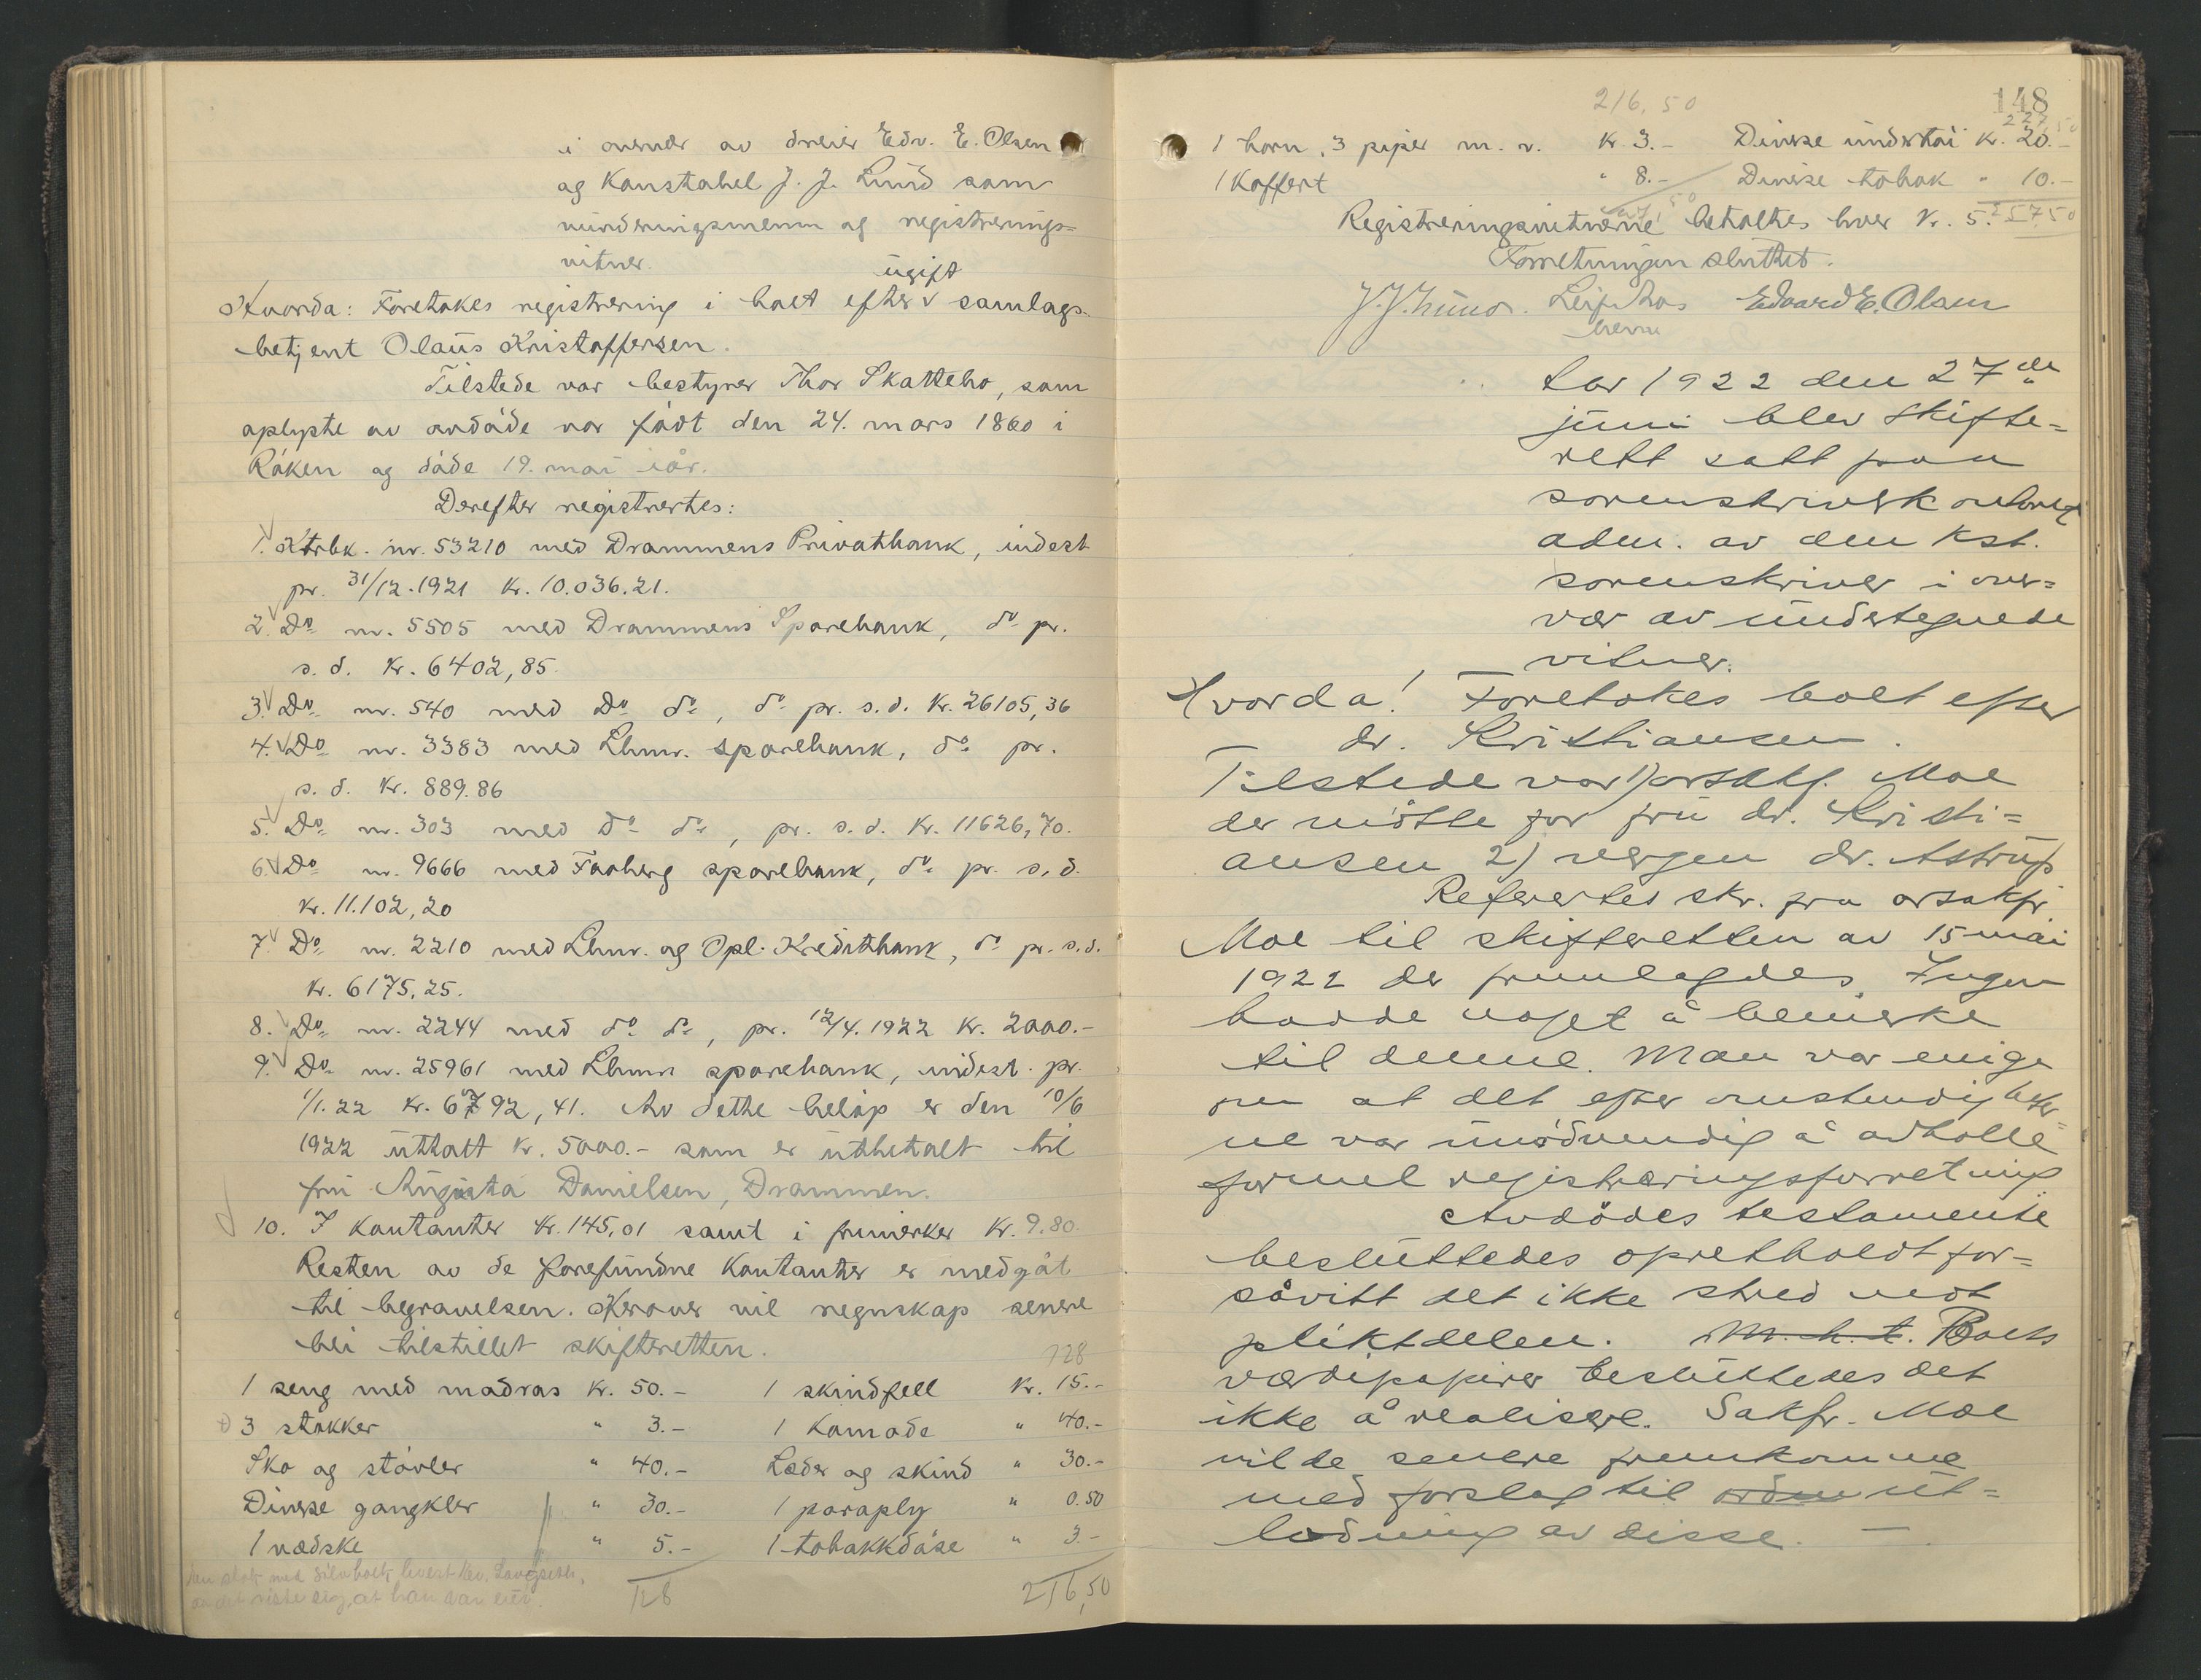 i overvær av dreier Edv. E. Olsen
og Konstabel J. J. Lund som
vurderingsmenn og registrerings-
vitner.
Hvorda: Foretokes registrering i boet efter ugift samlags-
betjent Olaus Kristoffersen.
Tilstede var bestyrer Thor Skattebo, som
oplyste av avdøde var født den 24. mars 1860 i
Røken og døde 19. mai iår.
Derefter registrertes:
1. Ktrbk. nr. 53210 med Drammens Privatbank, indest
pr. 31/12.1921 Kr. 10.036.21.
2. Do nr. 5505 med Drammens Sparebank, do pr.
s. d. Kr. 6402,85.
3. Do nr. 540 med Do do, do pr. s. d. Kr. 26105,36
4. Do nr. 3383 med Lhmr. sparebank, do pr.
s. d. Kr. 889.86
5. Do nr. 303 med Do do, pr. s. d. Kr. 11626,70.
6. Do nr. 9666 med Faaberg sparebank, do pr. s. d.
Kr. 11.102,20
7. Do nr. 2210 med Lhmr. og Opl. Kreditbank, do pr. s. d.
Kr. 6175.25.
8. Do nr. 2244 med do do, pr. 12/4.1922 Kr. 2000.-
9. Do nr. 25961 med Lhmr sparebank, indest. pr.
1/1.22 Kr. 6792,41. Av dette beløp er den 10/6
1922 uttatt Kr. 5000.- som er utbetalt til
fru Augusta Danielsen, Drammen.
10. I kontanter Kr. 145,01 samt i frimerker Kr. 9.80.
Resten av de forefundne kontanter er medgåt
til begravelsen. Herover vil regnskap senere
bli tilstillet skifteretten.
128
1 seng med madras Kr. 50.- 1 skindfell Kr. 15.-
3 stokker " 3.- 1 Komode " 40.-
Sko og støvler " 40.- Læder og skind " 30.-
Diverse gangklær " 30.- 1 paraply " 0.50
1 vædske " 5.- 1 tobakkdåse " 3.-
128 216,50
216,50
148
227,50
1 horn, 3 piper m. v. Kr. 3.- Diverse undertøi Kr. 20.-
1 Koffert " 8.- Diverse tobak " 10.-
Registreringsvitnerne betaltes hver Kr. 5.- 257.50
Forretningen sluttet.
J. J. Lund. Edvard E. Olsen
År 1922 den 27de
juni blev skifte-
rett satt paa
sorenskriverk
adm. av den kst.
sorenskriver i over-
vær av undertegnede
vitner.
Hvorda! Foretokes boet efter
dr. Kristiansen.
Tilstede var 1) orsakf. Moe
der møtte for fru dr. Kristi-
ansen 2) vergen dr. Astrup
Referertes skr. fra orsakfr.
Moe til skifteretten av 15 mai
1922 der fremlagdes. Ingen
hadde noget å bemerke
til denne. Man var enige
om at det efter omstendighete-
ne var unødvendig å avholde
formel registreringsforretning
Avdødes testamente
besluttedes opretholdt for-
såvitt det ikke stred mot
pliktdelen. M. h. t. Boets
værdipapirer besluttedes det
ikke å realisere. Sakfr. Moe
vilde senere fremkomme
med forslag til ut-
lodning av disse. —